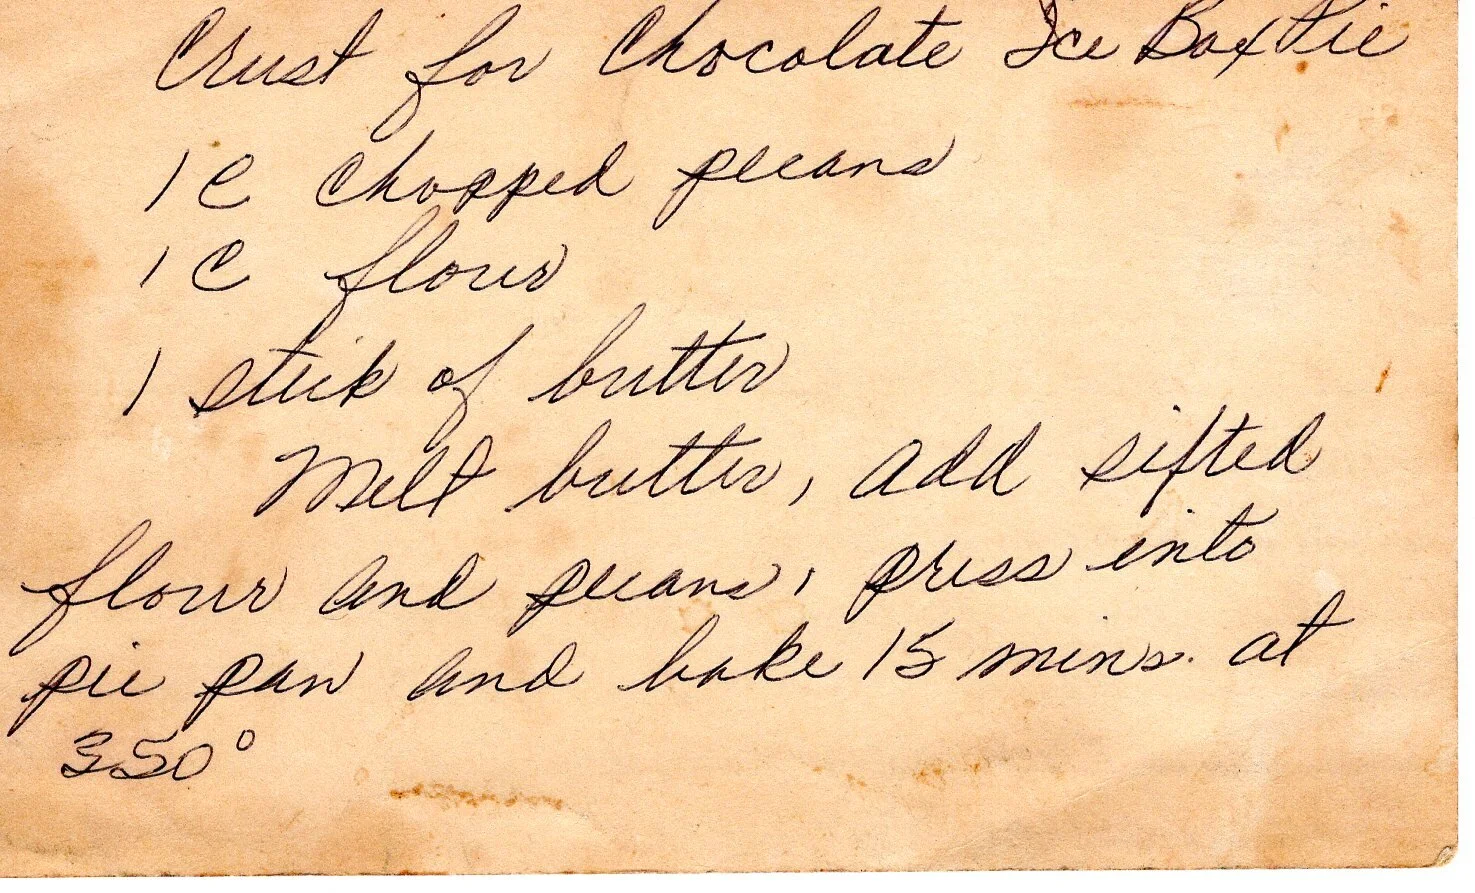 Crust for Chocolate Ice Box Pie
1 C Chopped pecans
1 C flour
1 stick of butter
Melt butter, add sifted
flour and pecans, press into
pie pan and bake 15 mins. at
350°